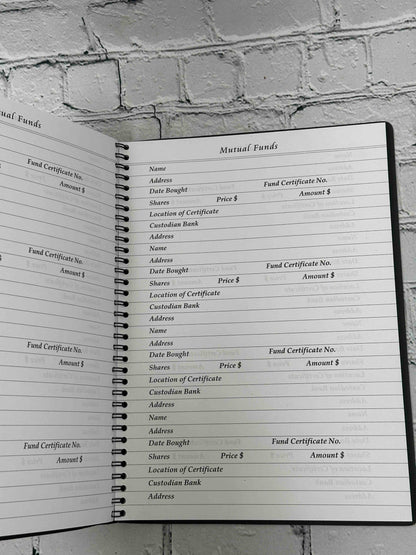 ual Funds
Fund Certificate No.
Amount $
Fund Certificate No.
Amount $
Fund Certificate No.
Amount $
Fund Certificate No.
Amount $
Mutual Funds
Name
Address
Date Bought Fund Certificate No.
Shares Price $ Amount $
Location of Certificate
Custodian Bank
Address
Name
Address
Date Bought Fund Certificate No.
Shares Price $ Amount $
Location of Certificate
Custodian Bank
Address
Name
Address
Date Bought Fund Certificate No.
Shares Price $ Amount $
Location of Certificate
Custodian Bank
Address
Name
Address
Date Bought Fund Certificate No.
Shares Price $ Amount $
Location of Certificate
Custodian Bank
Address